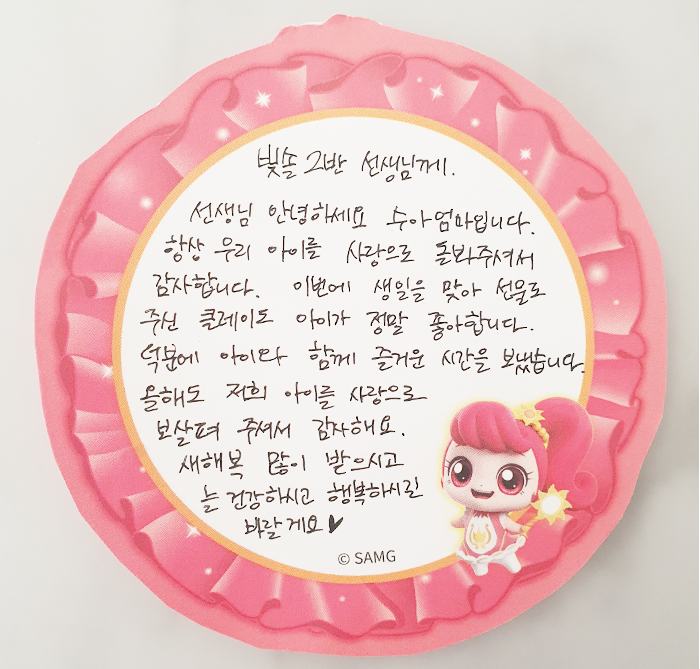 빛솔 2반 선생님께.
선생님 안녕하세요 수아엄마입니다.
항상 우리 아이를 사랑으로 돌봐주셔서
감사합니다. 이번에 생일을 맞아 선물로
주신 클레이도 아이가 정말 좋아합니다.
덕분에 아이와 함께 즐거운 시간을 보냈습니다.
올해도 저희 아이를 사랑으로
보살펴 주셔서 감사해요.
새해복 많이 받으시고
늘 건강하시고 행복하시길
바랄게요♥
© SAMG